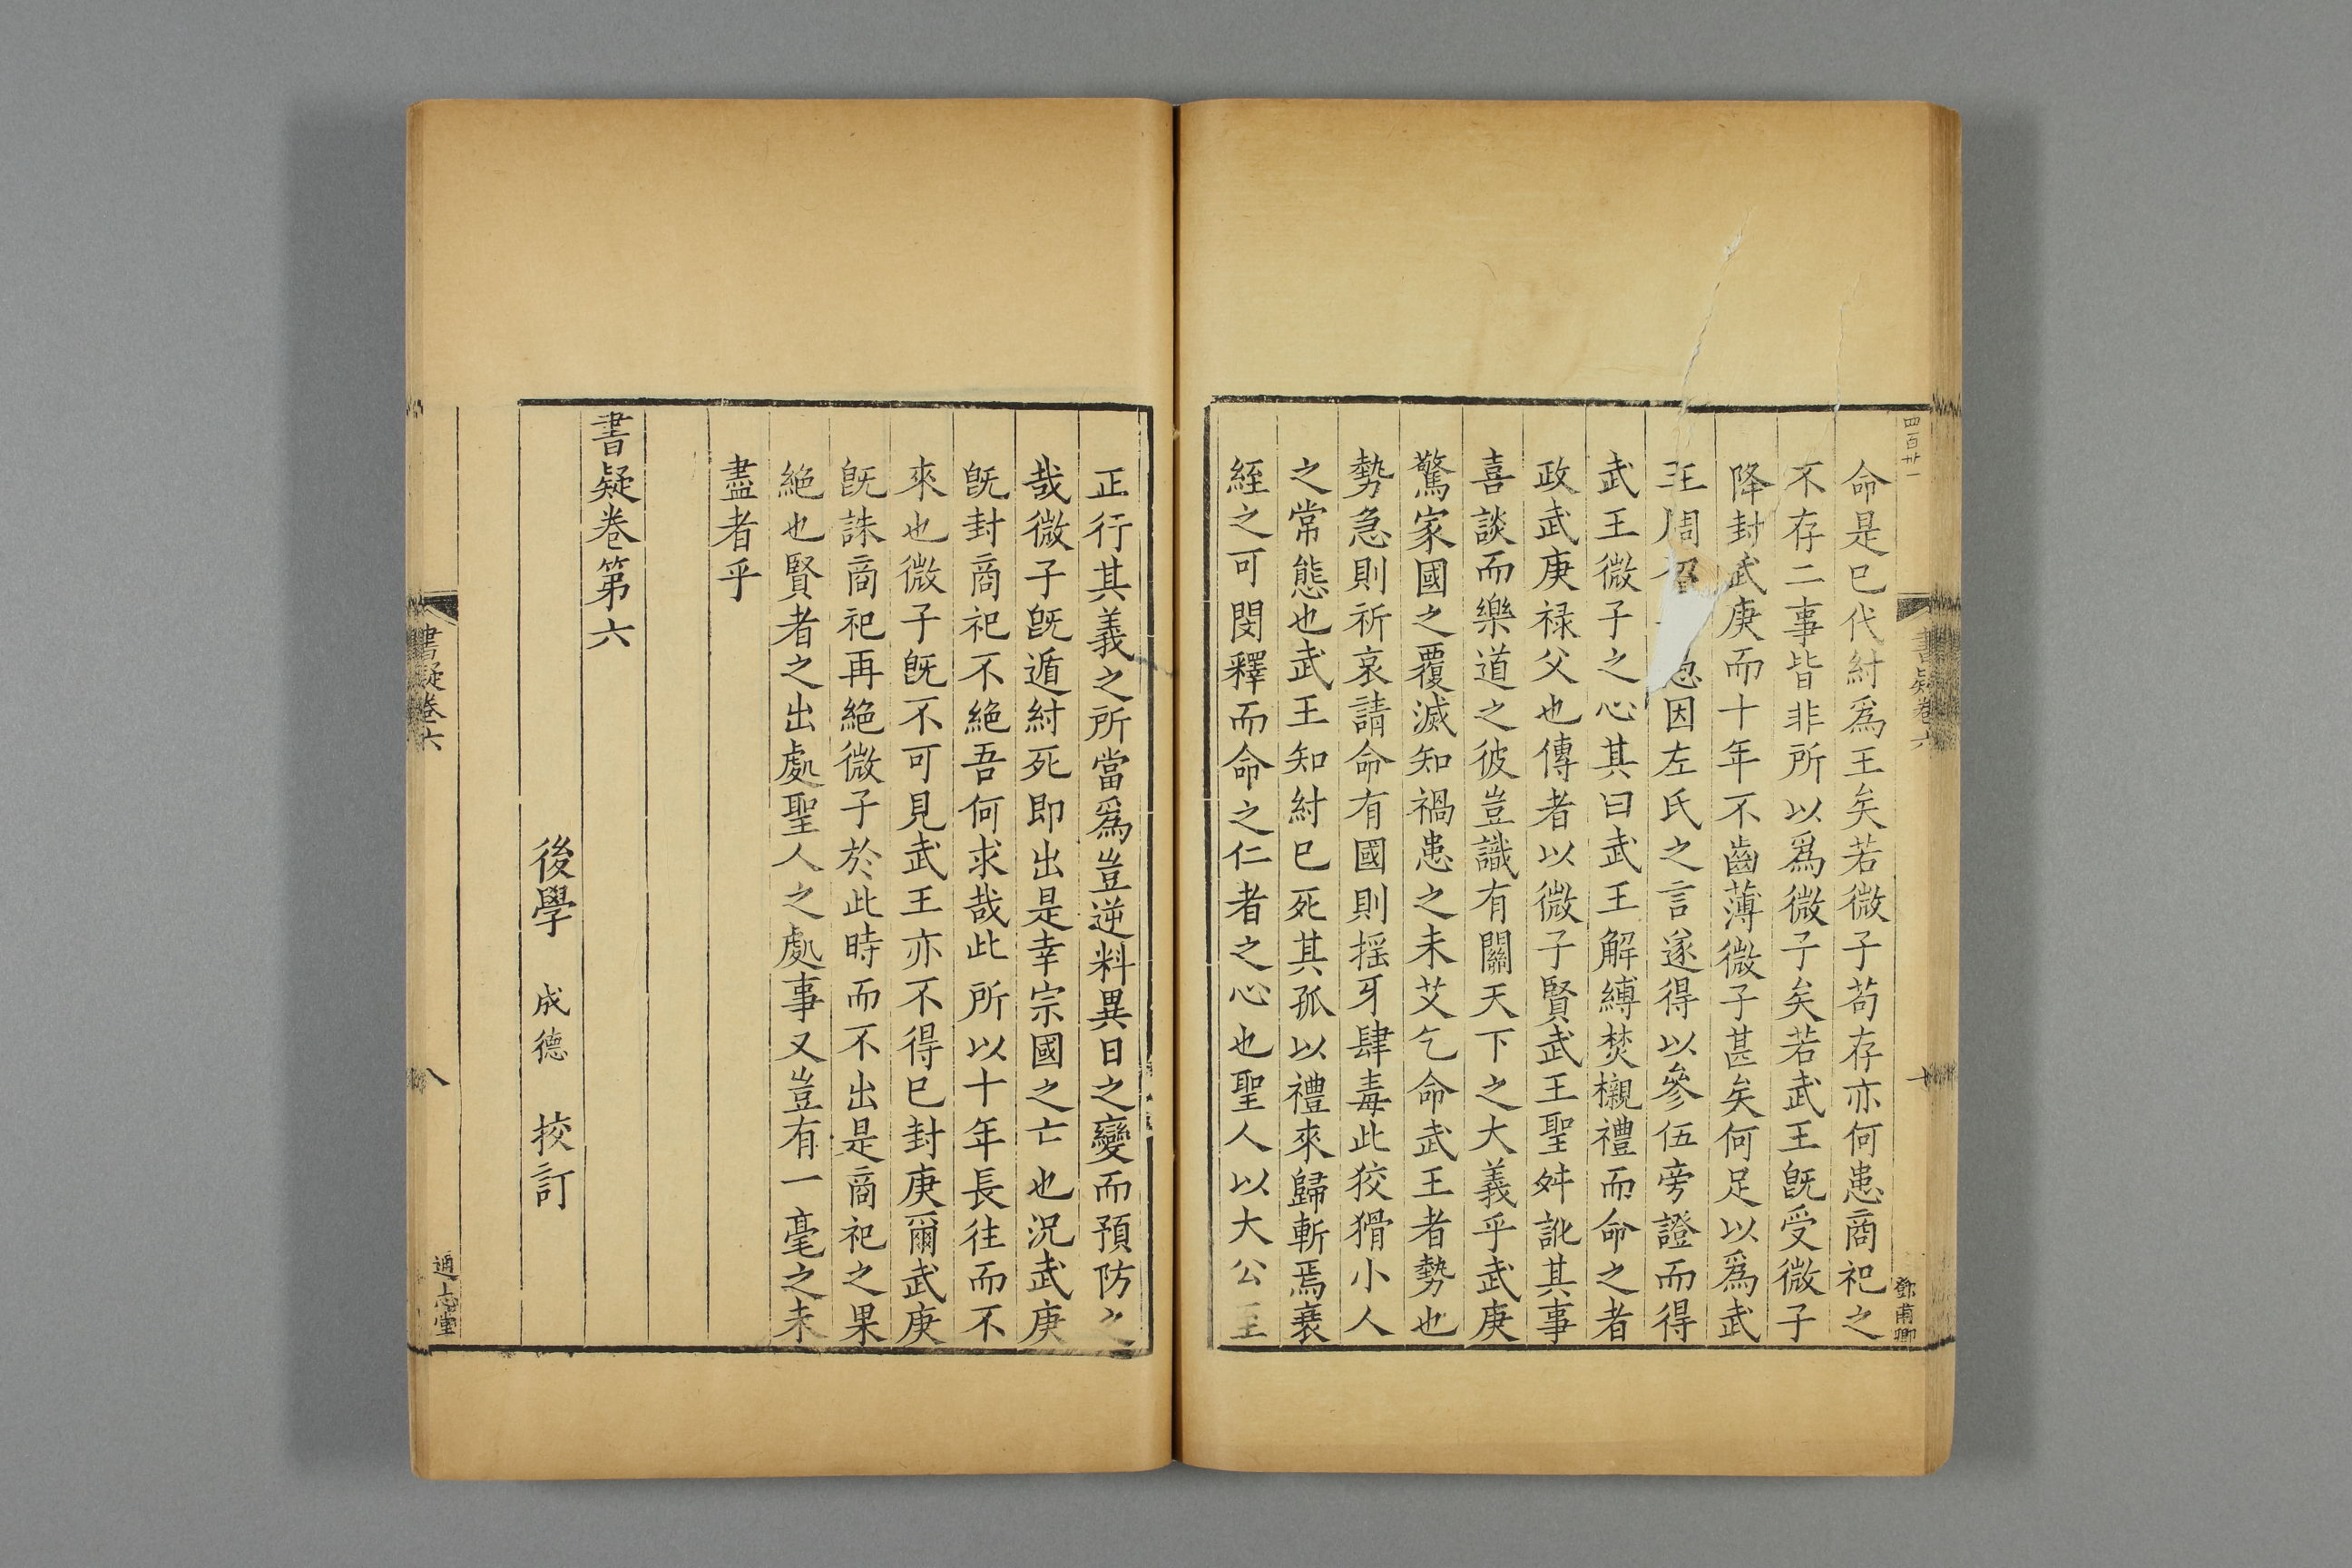 四百廿一
命是已代紂爲王矣若微子苟存亦何患商祀之
不存二事皆非所以爲微子矣若武王旣受微子
降封武庚而十年不齒薄微子甚矣何足以爲武
王周召因左氏之言遂得以參伍旁證而得
武王微子之心其曰武王解縛焚櫬禮而命之者
政武庚禄父也傳者以微子賢武王聖舛訛其事
喜談而樂道之彼豈識有關天下之大義乎武庚
驚家國之覆滅知禍患之未艾乞命武王者勢也
勢急則祈哀請命有國則揺牙肆毒此狡猾小人
之常態也武王知紂已死其孤以禮來歸斬焉衰
絰之可閔釋而命之仁者之心也聖人以大公至
書疑卷六
十
鄧甫卿
正行其義之所當爲豈逆料異日之變而預防之
哉微子旣遁紂死即出是幸宗國之亡也況武庚
旣封商祀不絶吾何求哉此所以十年長往而不
來也微子旣不可見武王亦不得已封庚爾武庚
旣誅商祀再絶微子於此時而不出是商祀之果
絶也賢者之出處聖人之處事又豈有一毫之未
盡者乎
書疑卷第六
後學 成德 挍訂
書疑卷六
八
通志堂